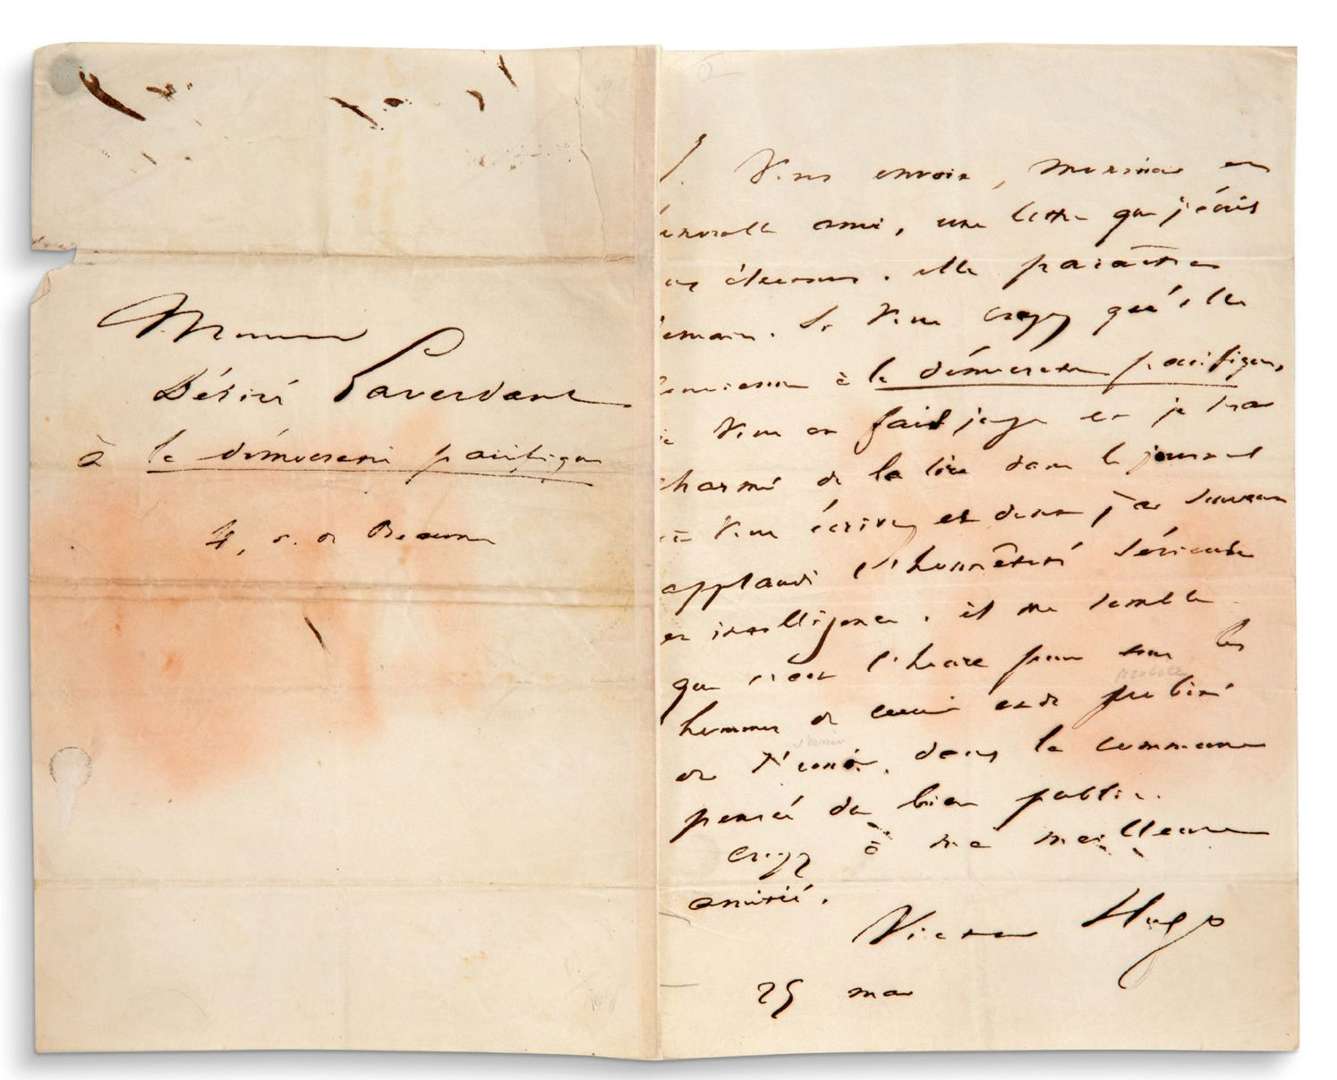 Monsieur
Désiré Laverdant
à la démocratie pacifique
4, r. de Beaune
J. vous envoie, monsieur et
ami, une lettre que j'écris
aux électeurs. elle paraîtra
demain. Si vous croyez qu'elle
à la démocratie pacifique,
je vous en fais juge et je serai
charmé de la lire dans le journal
où vous écrivez et dont j'ai souvent
applaudi l'honnêteté sérieuse
et intelligente. il me semble
que c'est l'heure pour tous les
hommes de cœur et de probité
de s'unir dans la commune
pensée du bien public.
Croyez à ma meilleure
amitié.
Victor Hugo
25 mai